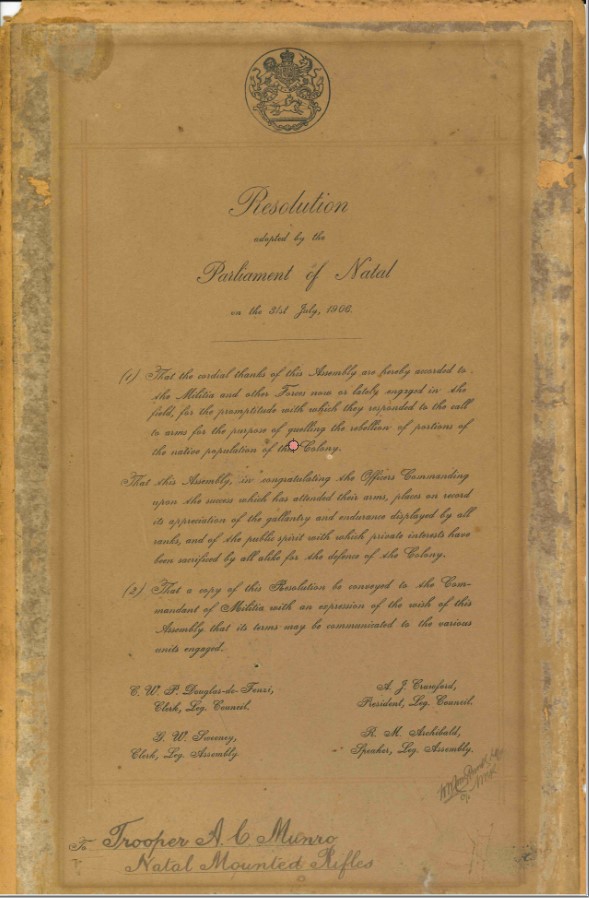 Resolution
adopted by the
Parliament of Natal
on the 31st July, 1906.
(1) That the cordial thanks of this Assembly are hereby accorded to
the Militia and other Forces now or lately engaged in the
field, for the promptitude with which they responded to the call
to arms for the purpose of quelling the rebellion of portions of
the native population of this Colony.
That this Assembly, in congratulating the Officers Commanding
upon the success which has attended their arms, places on record
its appreciation of the gallantry and endurance displayed by all
ranks, and of the public spirit with which private interests have
been sacrificed by all alike for the defence of the Colony.
(2) That a copy of this Resolution be conveyed to the Com-
mandant of Militia with an expression of the wish of this
Assembly that its terms may be communicated to the various
units engaged.
C. W. P. Douglas-de-Fenzi,
Clerk, Leg. Council.
A. J. Crawford,
President, Leg. Council.
G. W. Sweeney,
Clerk, Leg. Assembly.
R. M. Archibald,
Speaker, Leg. Assembly.
To Trooper A. C Munro
Natal Mounted Rifles